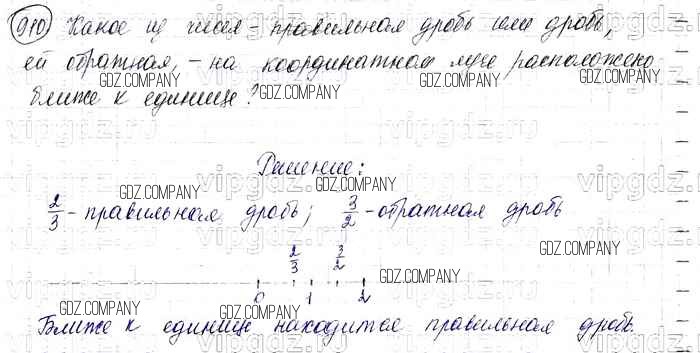 910 Какое из чисел - правильная дробь или дробь,
ей обратная, - на координатном луче расположено
GDZ.COMPANY GDZ.COMPANY GDZ.COMPANY
ближе к единице?
vipgdz.ru vipgdz.ru vipgdz.ru
Решение:
GDZ.COMPANY GDZ.COMPANY
2/3 - правильная дробь; 3/2 - обратная дробь
GDZ.COMPANY GDZ.COMPANY
2/3 3/2
GDZ.COMPANY
0 1 2
GDZ.COMPANY GDZ.COMPANY
Ближе к единице находится правильная дробь.